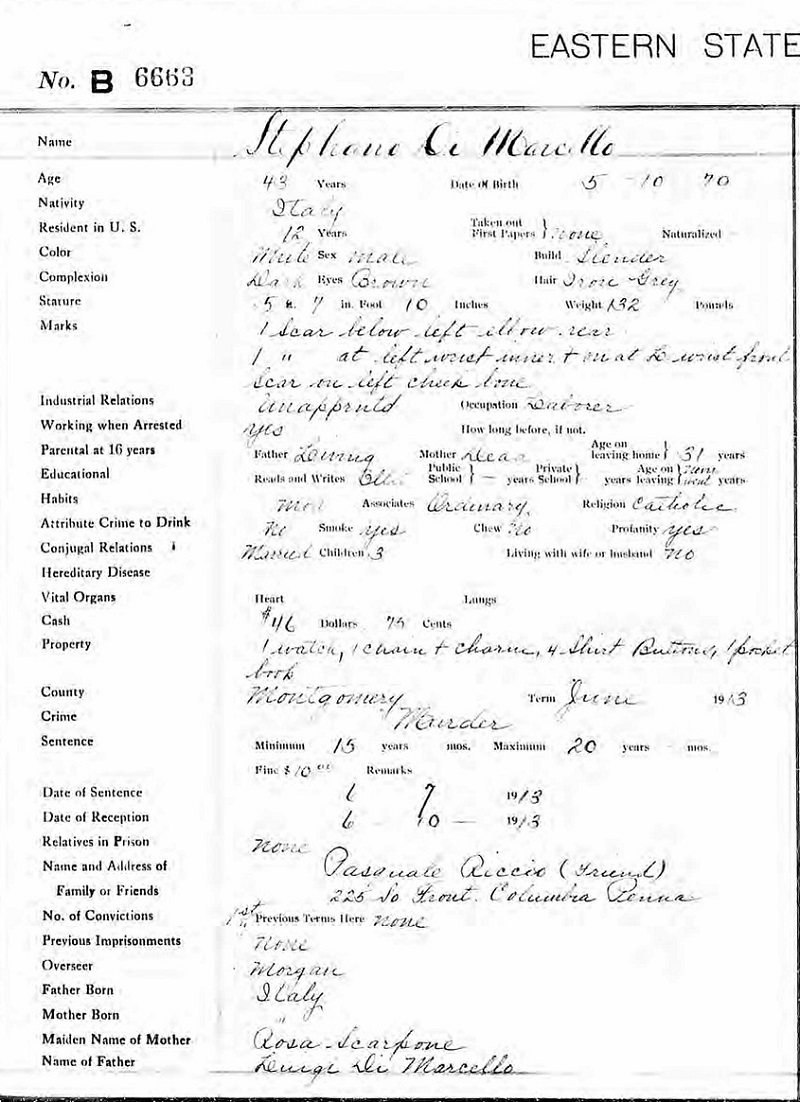 EASTERN STATE
No. B 6663
Name Stephano Di Marcello
Age 43 Years Date Of Birth 5 - 10 70
Nativity Italy
Resident in U. S. 12 Years Taken out First Papers } none Naturalized
Color White Sex male Build Slender
Complexion Dark Eyes Brown Hair Iron Grey
Stature 5 ft. 7 in. Foot 10 Inches Weight 132 Pounds
Marks 1 Scar below left elbow rear
1 " at left wrist inner + on at L wrist front
Scar on left cheek bone
Industrial Relations Unapprntd Occupation Laborer
Working when Arrested yes How long before, if not.
Parental at 16 years Father Living Mother Dead Age on leaving home } 31 years
Educational Reads and Writes Public School } — years Private School } years Age on leaving } never went years
Habits Mod Associates Ordinary Religion Catholic
Attribute Crime to Drink No Smoke yes Chew No Profanity yes
Conjugal Relations Married Children 3 Living with wife or husband no
Hereditary Disease
Vital Organs Heart Lungs
Cash $46 Dollars 75 Cents
Property 1 watch, 1 chain + charm, 4 Shirt Buttons, 1 pocket
book
County Montgomery Term June 1913
Crime Murder
Sentence Minimum 15 years mos. Maximum 20 years mos.
Fine $10.00 Remarks
Date of Sentence 6 7 1913
Date of Reception 6 - 10 - 1913
Relatives in Prison none
Name and Address of Pasquale Riccio (Friend)
Family or Friends 225 So Front. Columbia Penna
No. of Convictions 1st Previous Terms Here none
Previous Imprisonments none
Overseer Morgan
Father Born Italy
Mother Born "
Maiden Name of Mother Rosa Scarpone
Name of Father Luigi Di Marcello